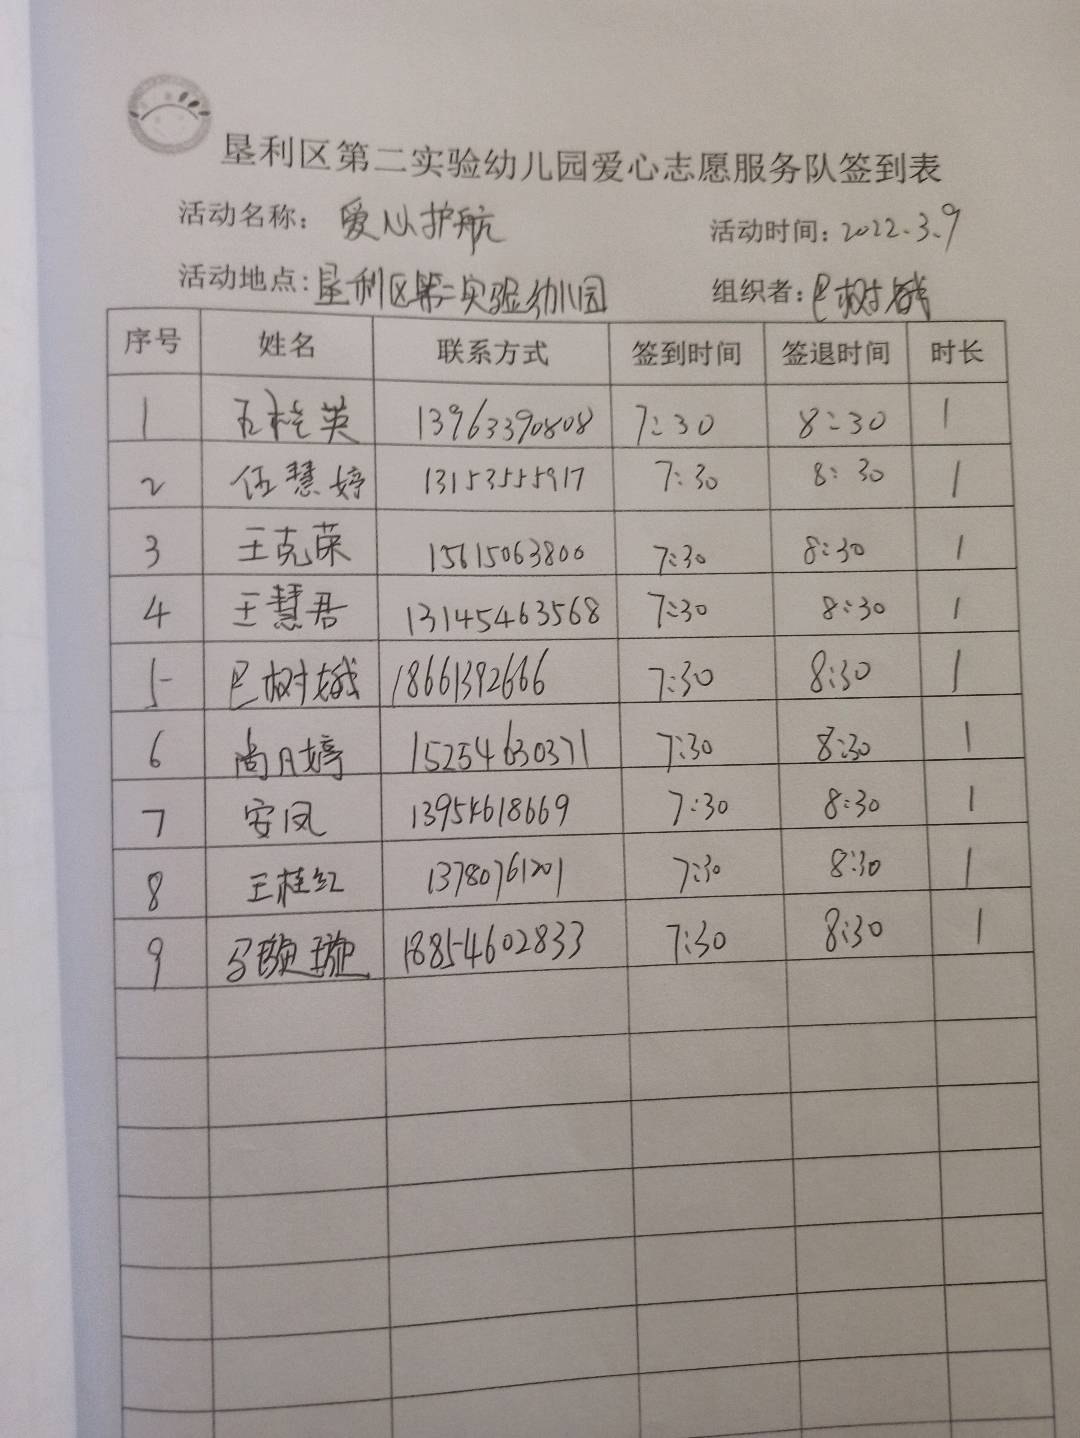 垦利区第二实验幼儿园爱心志愿服务队签到表
活动名称：爱心护航 活动时间：2022.3.9
活动地点：垦利区第二实验幼儿园 组织者：巴树娥
序号 姓名 联系方式 签到时间 签退时间 时长
1 英 13963390808 7:30 8:30 1
2 伍慧婷 13153555917 7:30 8:30 1
3 王克荣 15615063800 7:30 8:30 1
4 王慧君 13145463568 7:30 8:30 1
5 巴树娥 18661392666 7:30 8:30 1
6 尚月婷 15254630371 7:30 8:30 1
7 安凤 13954618669 7:30 8:30 1
8 王桂红 13780761201 7:30 8:30 1
9 18854602833 7:30 8:30 1